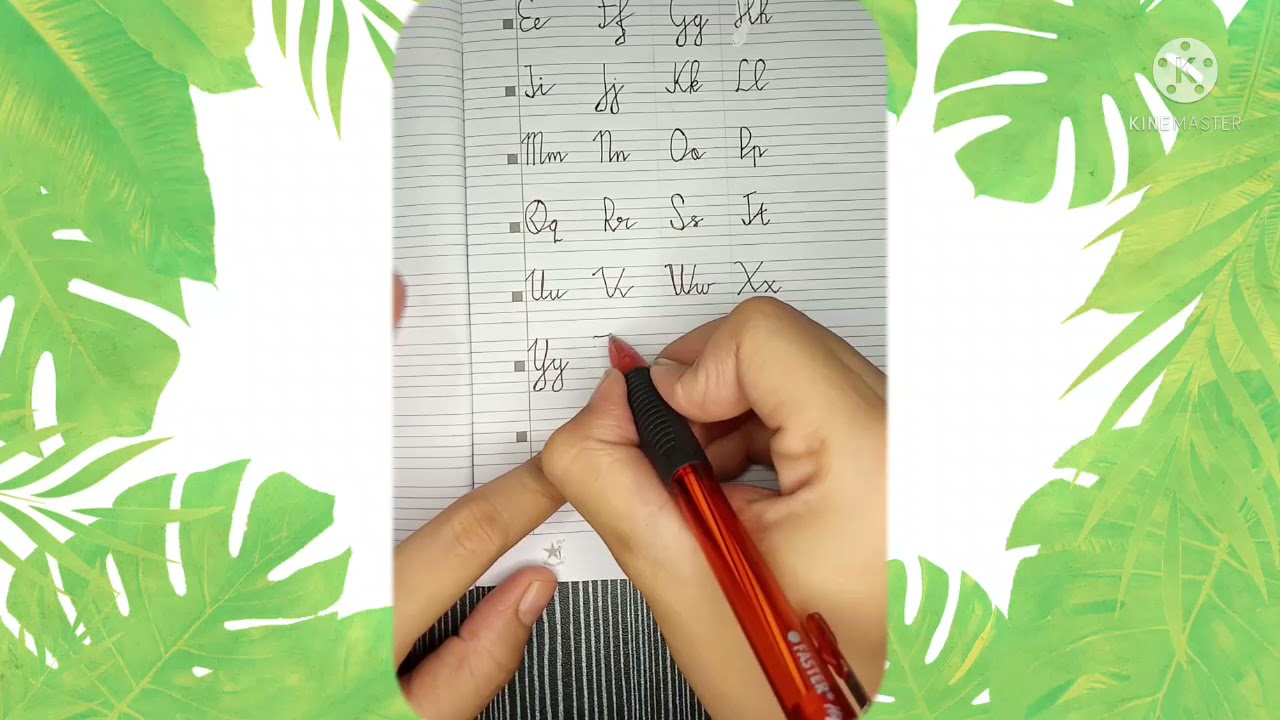 Ee Ff Gg Hh
Ii Jj Kk Ll
Mm Nn Oo Pp
Qq Rr Ss Tt
Uu Vv Ww Xx
Yy
FASTER
K
KINEMASTER